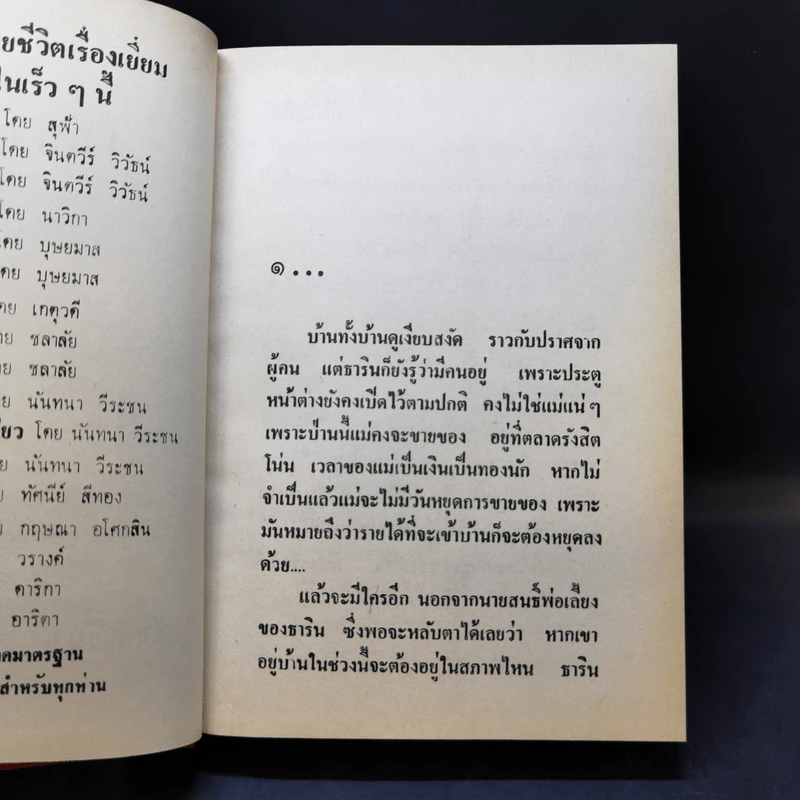 ยชีวิตเรื่องเยี่ยม
นเร็ว ๆ นี้
โดย สุฟ้า
โดย จินตวีร์ วิวัธน์
โดย จินตวีร์ วิวัธน์
โดย นาวิกา
โดย บุษยมาส
ดย บุษยมาส
ดย เกตุวดี
ย ชลาลัย
ย ชลาลัย
ย นันทนา วีระชน
ยว โดย นันทนา วีระชน
นันทนา วีระชน
ทัศนีย์ สีทอง
กฤษณา อโศกสิน
วรางค์
ดาริกา
อาริตา
ดมาตรฐาน
สำหรับทุกท่าน
๑ ...
บ้านทั้งบ้านดูเงียบสงัด ราวกับปราศจาก
ผู้คน แต่ธารินก็ยังรู้ว่ามีคนอยู่ เพราะประตู
หน้าต่างยังคงเปิดไว้ตามปกติ คงไม่ใช่แม่แน่ๆ
เพราะป่านนี้แม่คงจะขายของ อยู่ที่ตลาดรังสิต
โน่น เวลาของแม่เป็นเงินเป็นทองนัก หากไม่
จำเป็นแล้วแม่จะไม่มีวันหยุดการขายของ เพราะ
มันหมายถึงว่ารายได้ที่จะเข้าบ้านก็จะต้องหยุดลง
ด้วย....
แล้วจะมีใครอีก นอกจากนายสนธิ์พ่อเลี้ยง
ของธาริน ซึ่งพอจะหลับตาได้เลยว่า หากเขา
อยู่บ้านในช่วงนี้จะต้องอยู่ในสภาพไหน ธาริน